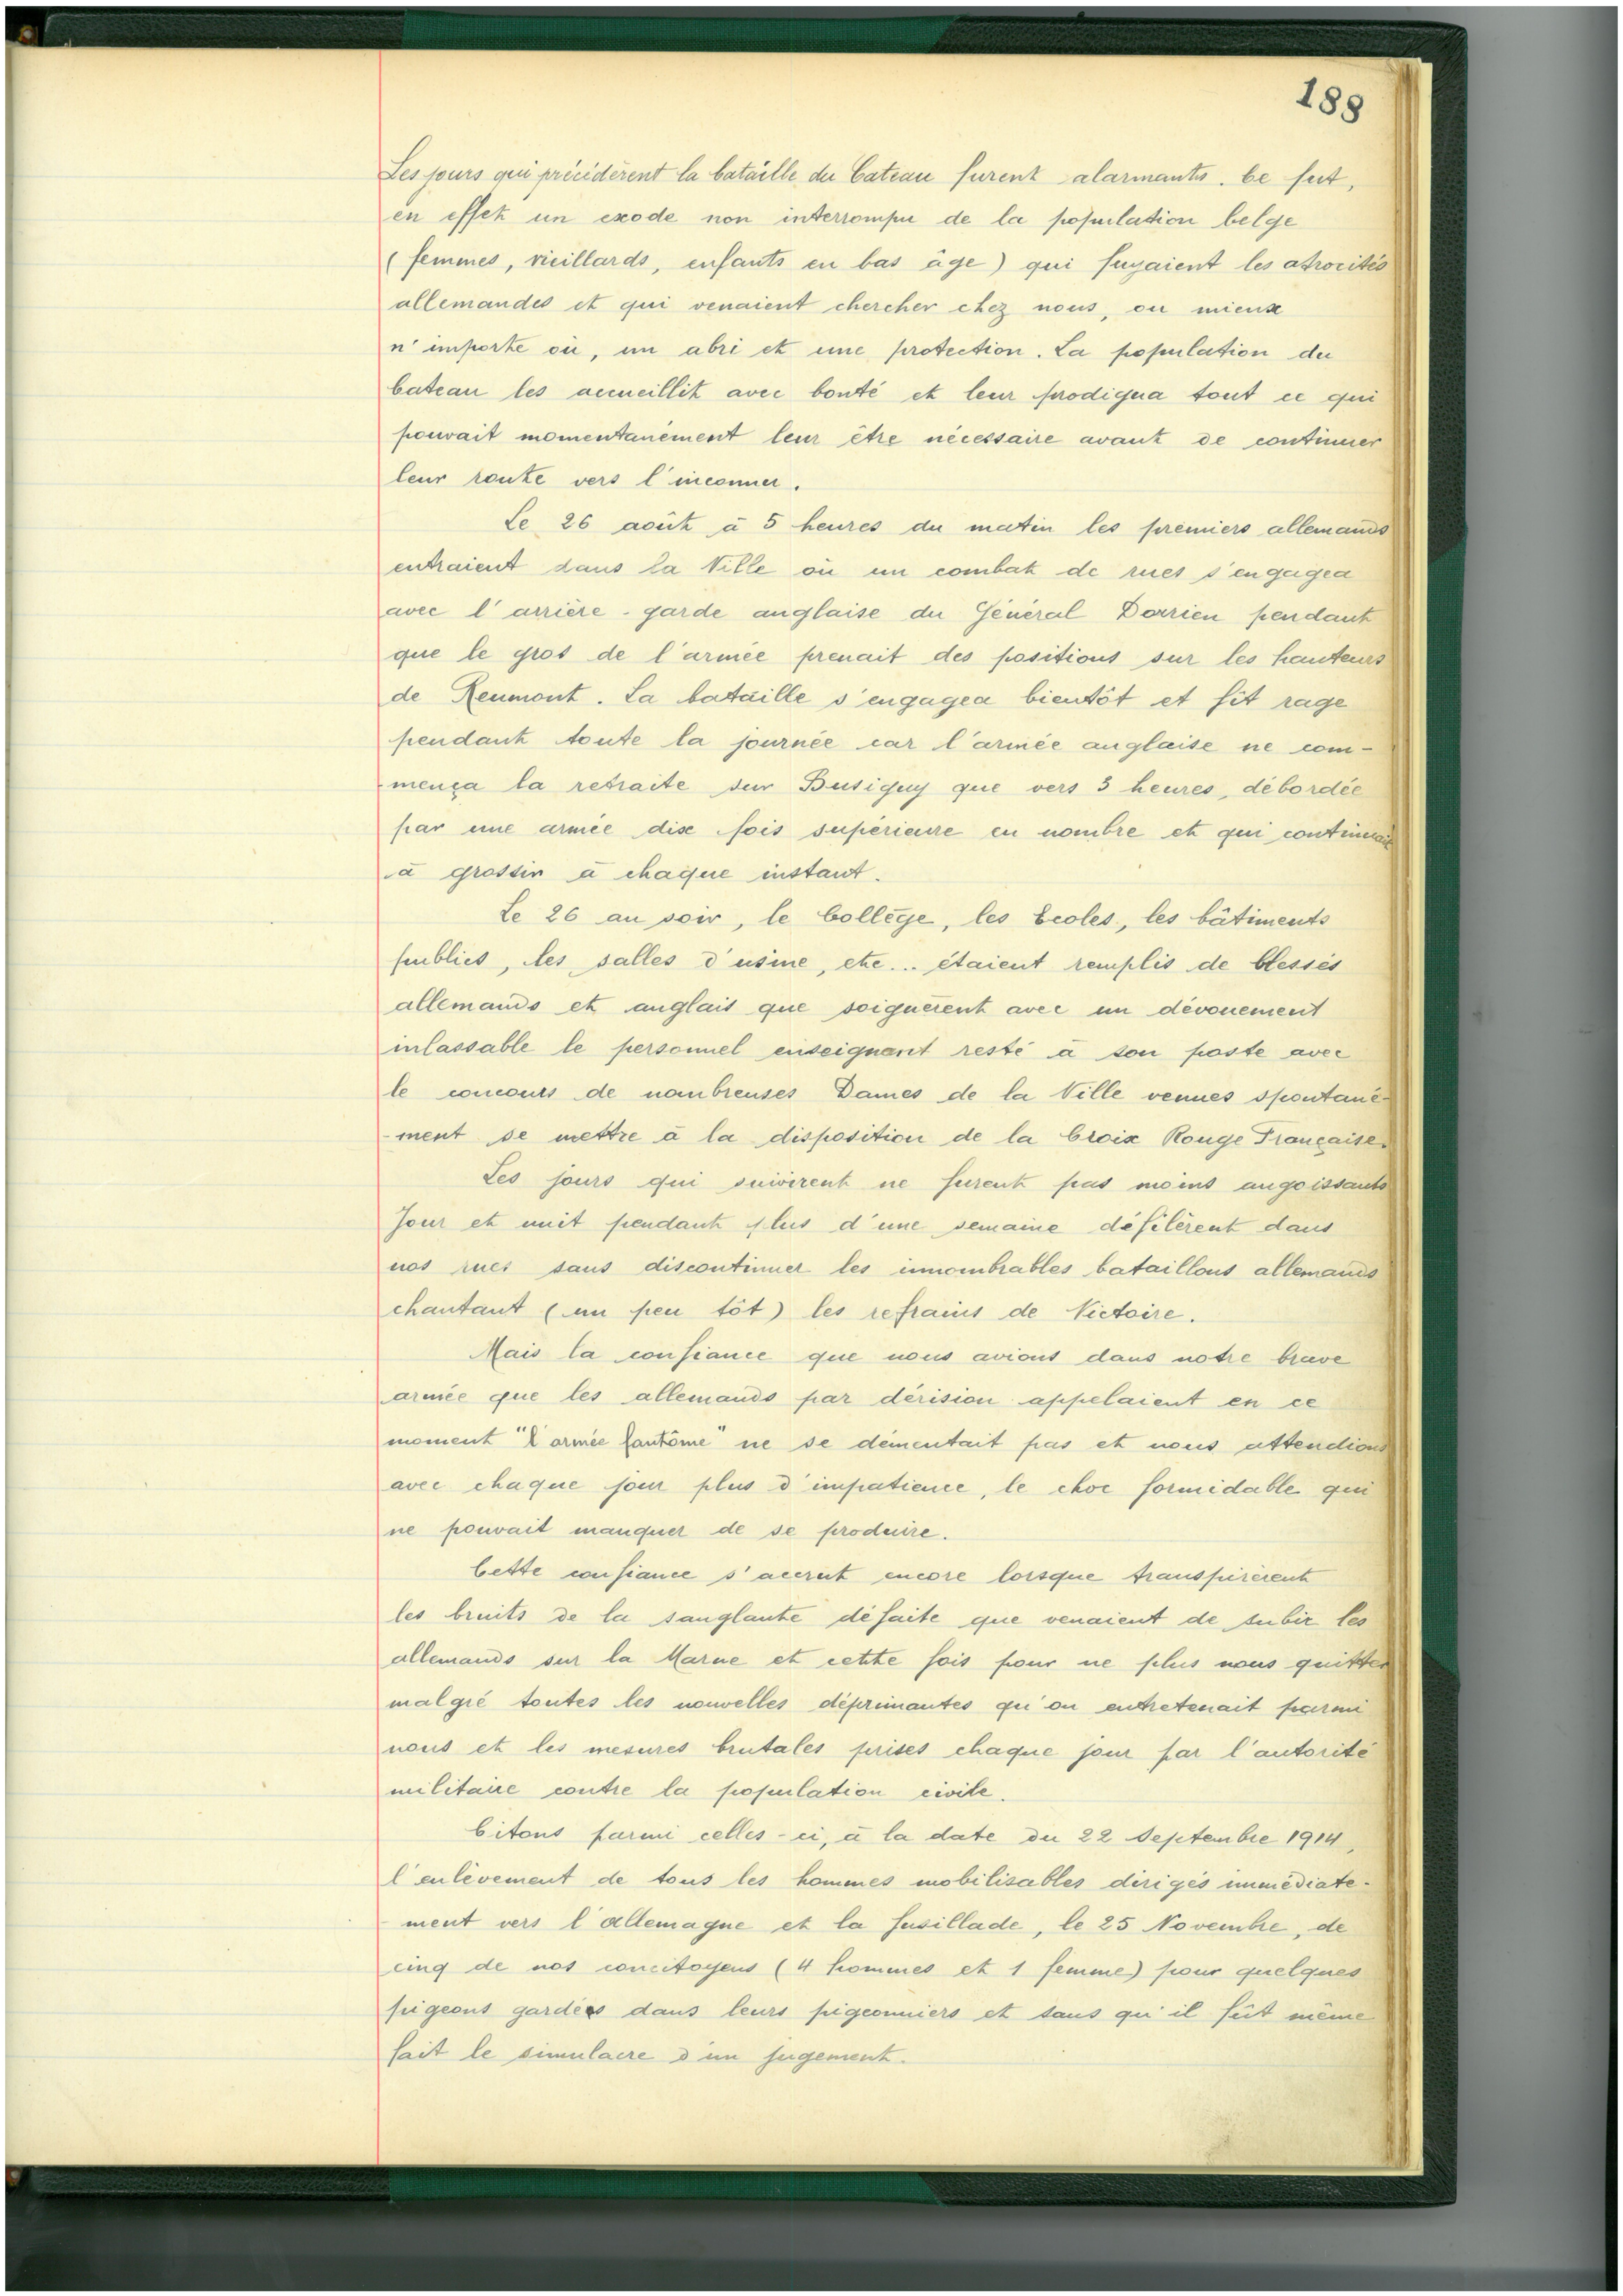 188
Les jours qui précédèrent la bataille du Cateau furent alarmants. Ce fut,
en effet un exode non interrompu de la population belge
(femmes, vieillards, enfants en bas âge) qui fuyaient les atrocités
allemandes et qui venaient chercher chez nous, ou mieux
n'importe où, un abri et une protection. La population du
Cateau les accueillit avec bonté et leur prodigua tout ce qui
pouvait momentanément leur être nécessaire avant de continuer
leur route vers l'inconnu.
Le 26 août à 5 heures du matin les premiers allemands
entraient dans la Ville où un combat de rues s'engagea
avec l'arrière-garde anglaise du Général Dorrien pendant
que le gros de l'armée prenait des positions sur les hauteurs
de Reumont. La bataille s'engagea bientôt et fit rage
pendant toute la journée car l'armée anglaise ne com-
mença la retraite sur Busigny que vers 3 heures, débordée
par une armée dix fois supérieure en nombre et qui continuait
à grossir à chaque instant.
Le 26 au soir, le Collège, les Ecoles, les bâtiments
publics, les salles d'usine, etc... étaient remplis de blessés
allemands et anglais que soignèrent avec un dévouement
inlassable le personnel enseignant resté à son poste avec
le concours de nombreuses Dames de la Ville venues spontané-
-ment se mettre à la disposition de la Croix Rouge Française.
Les jours qui suivirent ne furent pas moins angoissants
Jour et nuit pendant plus d'une semaine défilèrent dans
nos rues sans discontinuer les innombrables bataillons allemands
chantant (un peu tôt) les refrains de Victoire.
Mais la confiance que nous avions dans notre brave
armée que les allemands par dérision appelaient en ce
moment "l'armée fantôme" ne se démentait pas et nous attendions
avec chaque jour plus d'impatience, le choc formidable qui
ne pouvait manquer de se produire.
Cette confiance s'accrut encore lorsque transpirèrent
les bruits de la sanglante défaite que venaient de subir les
allemands sur la Marne et cette fois pour ne plus nous quitter
malgré toutes les nouvelles déprimantes qu'on entretenait parmi
nous et les mesures brutales prises chaque jour par l'autorité
militaire contre la population civile.
Citons parmi celles-ci, à la date du 22 Septembre 1914,
l'enlèvement de tous les hommes mobilisables dirigés immédiate-
ment vers l'allemagne et la fusillade, le 25 Novembre, de
cinq de nos concitoyens (4 hommes et 1 femme) pour quelques
pigeons gardés dans leurs pigeonniers et sans qu'il fût même
fait le simulacre d'un jugement.